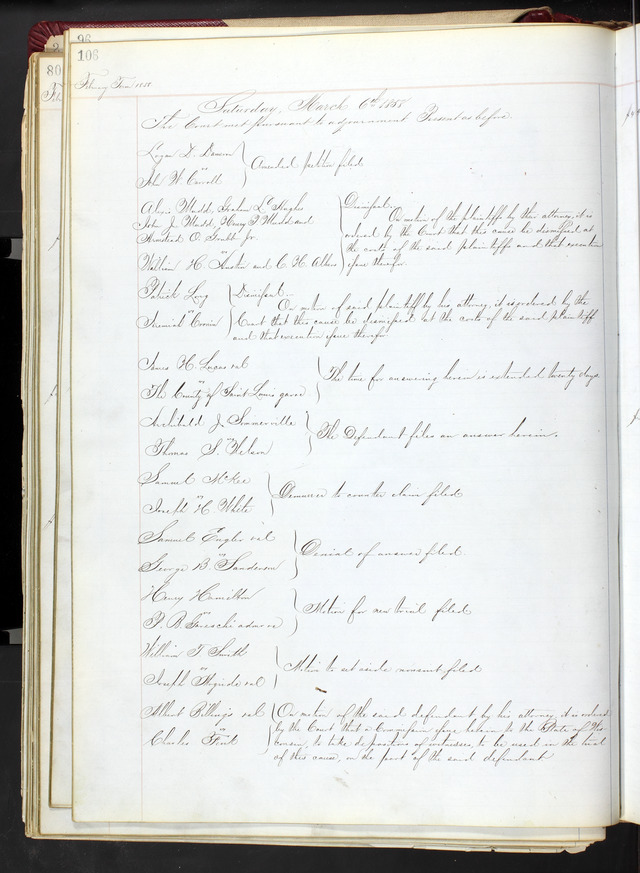 96
106
80
February Term 1858
Saturday, March 6th 1858
The Court met pursuant to adjournment Present as before.
Logan D. Dameron
vs
John W. Carroll
Amended petition filed
Alexis Mudd, Graham L. Hughes
John J. Mudd, Henry T. Mudd and
Armistead O. Grubb Jr.
vs
William H. and C. H. Albers
Dismissed.
On motion of the plaintiffs by their attorney, it is
ordered by the Court that this cause be dismissed at
the costs of the said plaintiffs and that execution
issue therefor.
Patrick Long
vs
Jeremiah Cronin
Dismissed.
On motion of said plaintiff by his attorney, it is ordered by the
Court that this cause be dismissed at the costs of the said plaintiff
and that execution issue therefor.
James H. Lucas et al
vs
The County of Saint Louis garee
The time for answering herein is extended twenty days.
Archibald J. Sommerville
vs
Thomas S. Nelson
The Defendant files an answer herein.
Samuel McKee
vs
Joseph H. White
Demurrer to counter claim filed
Samuel Engler et al
vs
George B. Sanderson
Denial of answer filed.
Henry Hamilton
vs
P. B. Gareschi admr &c
Motion for new trial filed
William T. Smith
vs
Joseph et al
Motion to set aside nonsuit filed
Albert Billings et al
vs
Charles
On motion of the said defendant by his attorney, it is ordered
by the Court that a Commission issue herein to the State of Wis-
consin, to take depositions of witnesses, to be used in the trial
of this cause, on the part of the said defendant